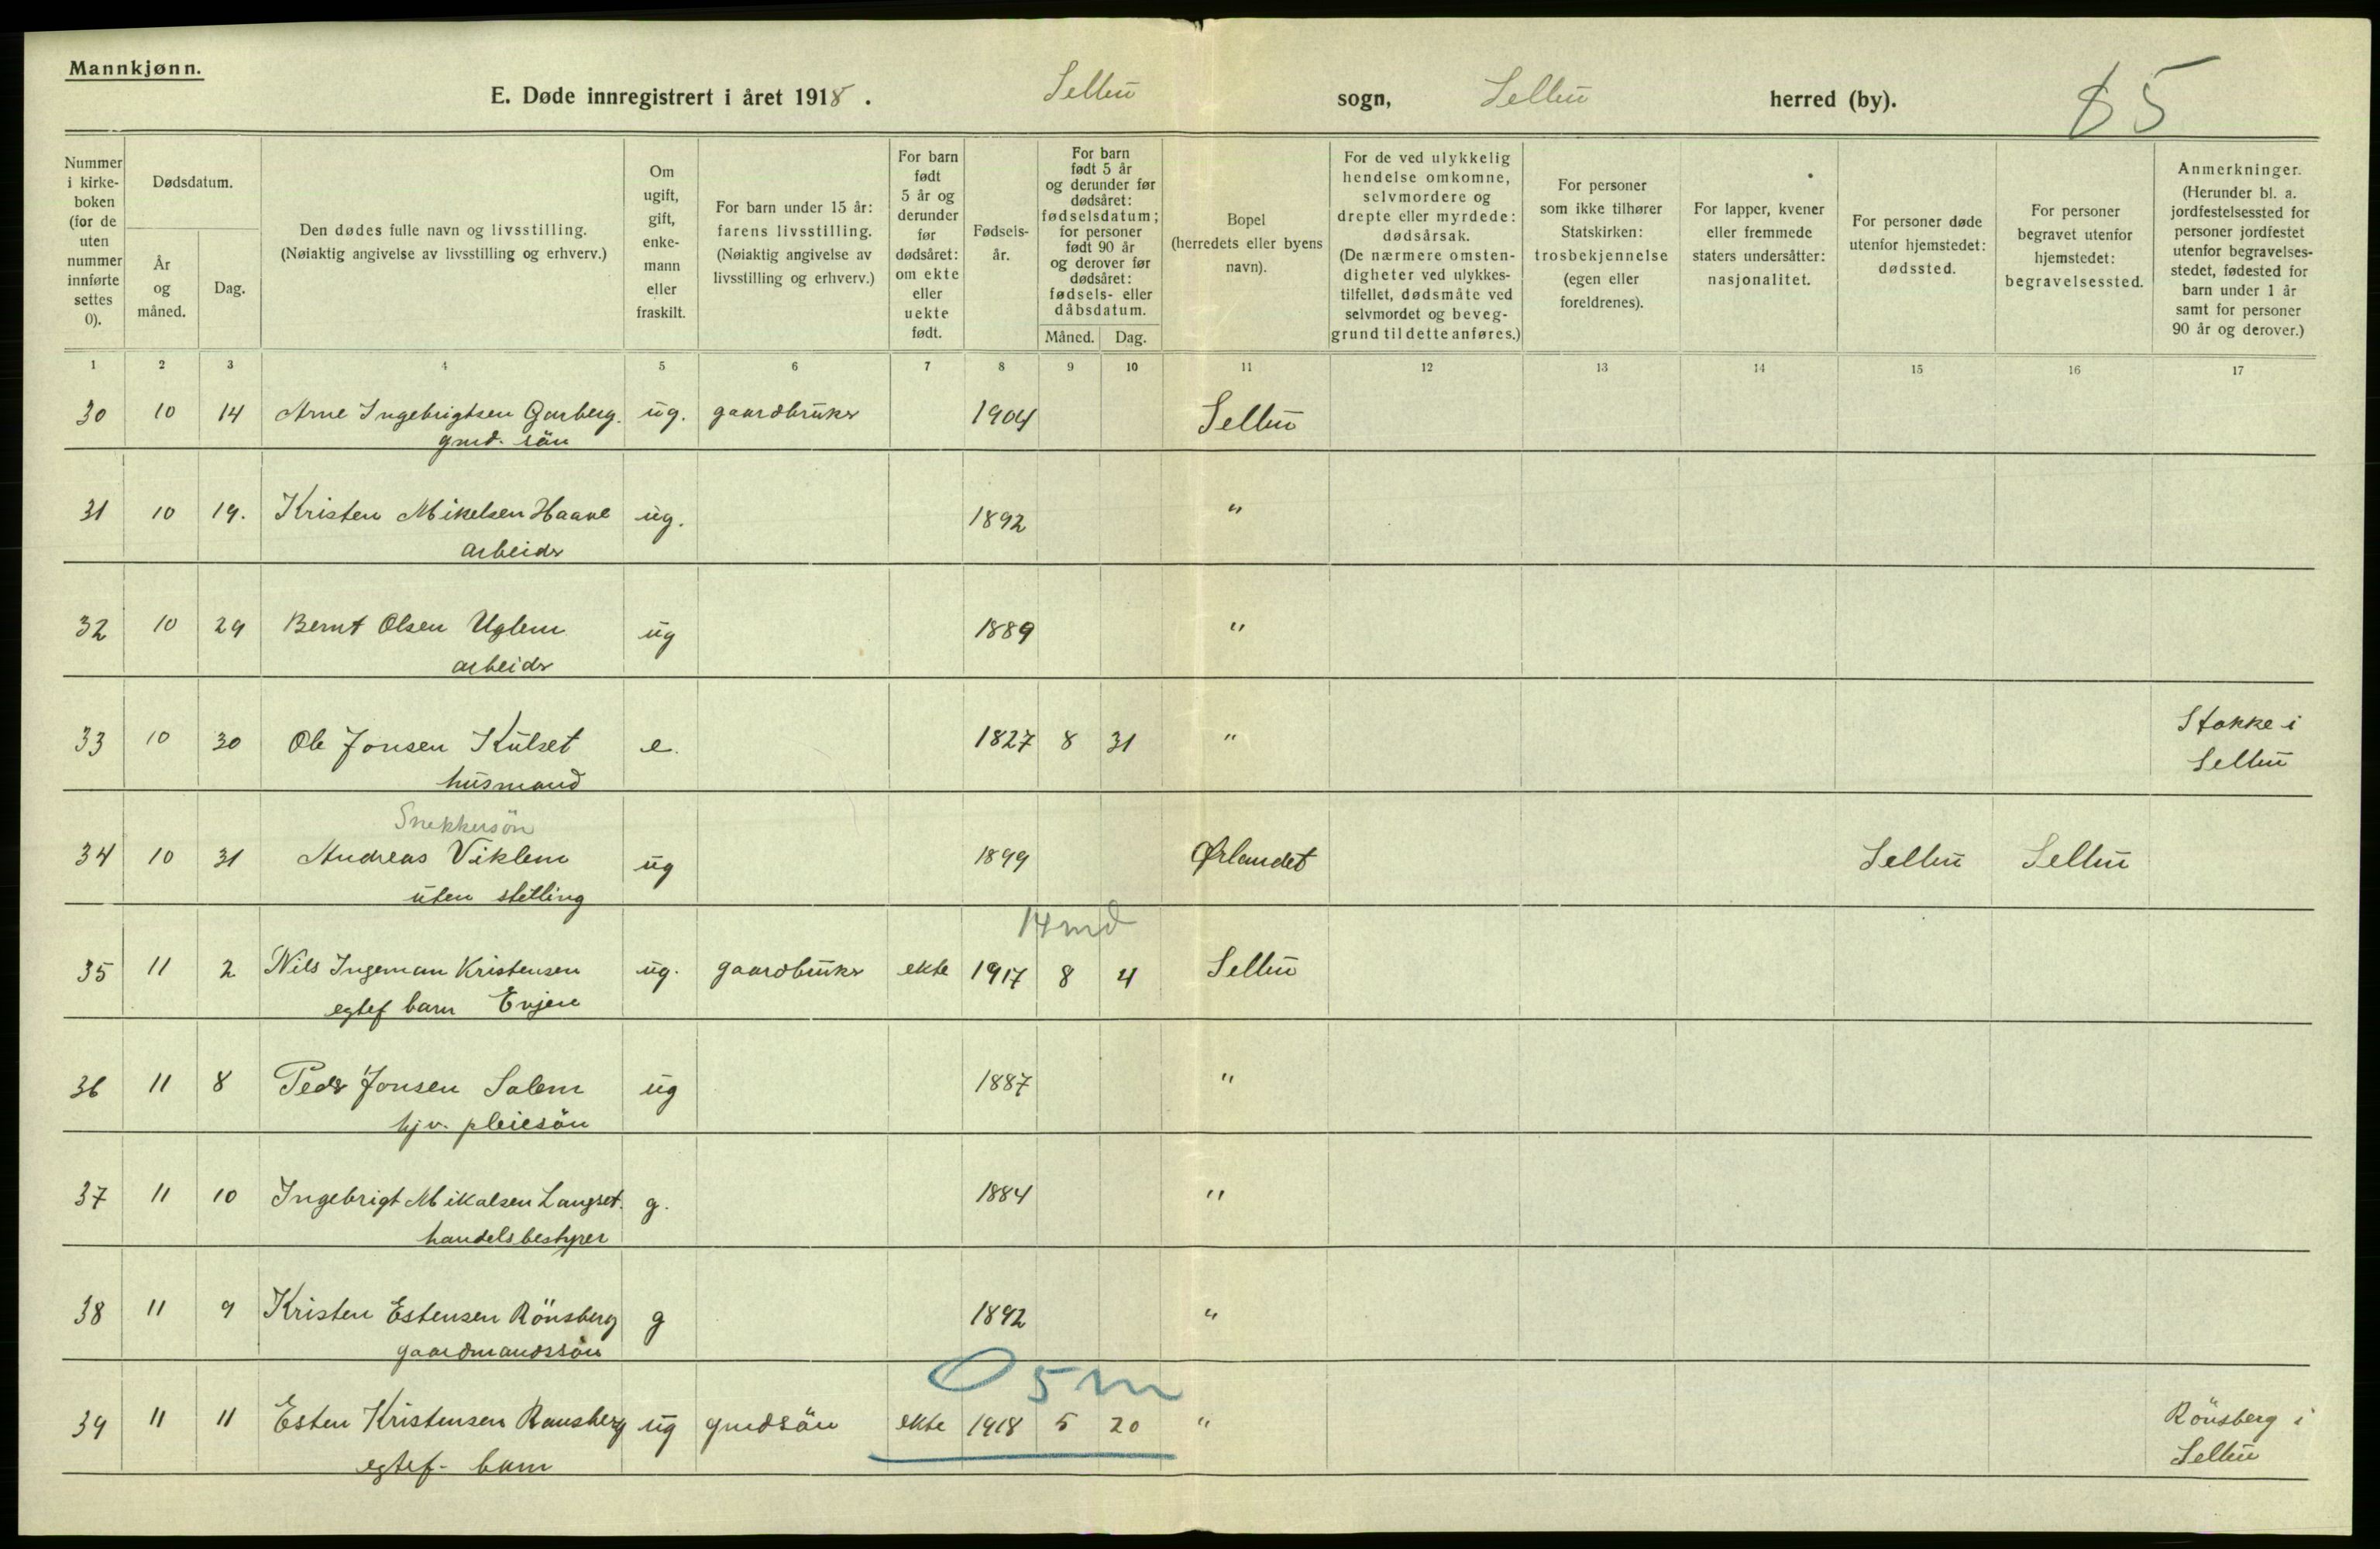 Mannkjønn.
E. Døde innregistrert i året 1918. Selbu sogn, Selbu herred (by). 85
Nummer i kirke-boken (for de uten nummer innførte settes 0).
Dødsdatum.
År og måned.
Dag.
Den dødes fulle navn og livsstilling.
(Nøiaktig angivelse av livsstilling og erhverv.)
Om ugift, gift, enke-mann eller fraskilt.
For barn under 15 år: farens livsstilling. (Nøiaktig angivelse av livsstilling og erhverv.)
For barn født 5 år og derunder før dødsåret: om ekte eller uekte født.
Fødsels-år.
For barn født 5 år og derunder før dødsåret: fødselsdatum; for personer født 90 år og derover før dødsåret: fødsels- eller dåbsdatum.
Måned. Dag.
Bopel (herredets eller byens navn).
For de ved ulykkelig hendelse omkomne, selvmordere og drepte eller myrdede: dødsårsak. (De nærmere omsten-digheter ved ulykkes-tilfellet, dødsmåte ved selvmordet og beveg-grund til dette anføres.)
For personer som ikke tilhører Statskirken: trosbekjennelse (egen eller foreldrenes).
For lapper, kvener eller fremmede staters undersåtter: nasjonalitet.
For personer døde utenfor hjemstedet: dødssted.
For personer begravet utenfor hjemstedet: begravelsessted.
Anmerkninger. (Herunder bl. a. jordfestelsessted for personer jordfestet utenfor begravelses-stedet, fødested for barn under 1 år samt for personer 90 år og derover.)
1 2 3 4 5 6 7 8 9 10 11 12 13 14 15 16 17
30 10 14 Arne Ingebrigtsen Garberg. ug. gaardbruker 1904 Selbu
gmd. sön
31 10 19. Kristen Mikelsen Haave ug. 1892 "
arbeider
32 10 29 Bernt Olsen Uglem ug 1889 "
arbeider
33 10 30 Ole Jonsen Kulset e. 1827 8 31 " Stokke i
husmand Selbu
Snekkersön
34 10 31 Andreas Viklem ug 1899 Ørlandet Selbu Selbu
uten stelling
14 md
35 11 2 Nils Ingeman Kristensen ug. gaardbruker ekte 1917 8 4 Selbu
egtef barn Evjen
36 11 8 Peder Jonsen Solem ug 1887 "
hjv. pleiesön
37 11 10 Ingebrigt Mikalsen Langset. g. 1884 "
handelsbestyrer
38 11 9 Kristen Estensen Rönsberg g 1892 "
gaardmandssön
0 5 m
39 11 11 Esten Kristensen Rønsberg ug gmdsön ekte 1918 5 20 " Rönsberg i
egtef. barn Selbu